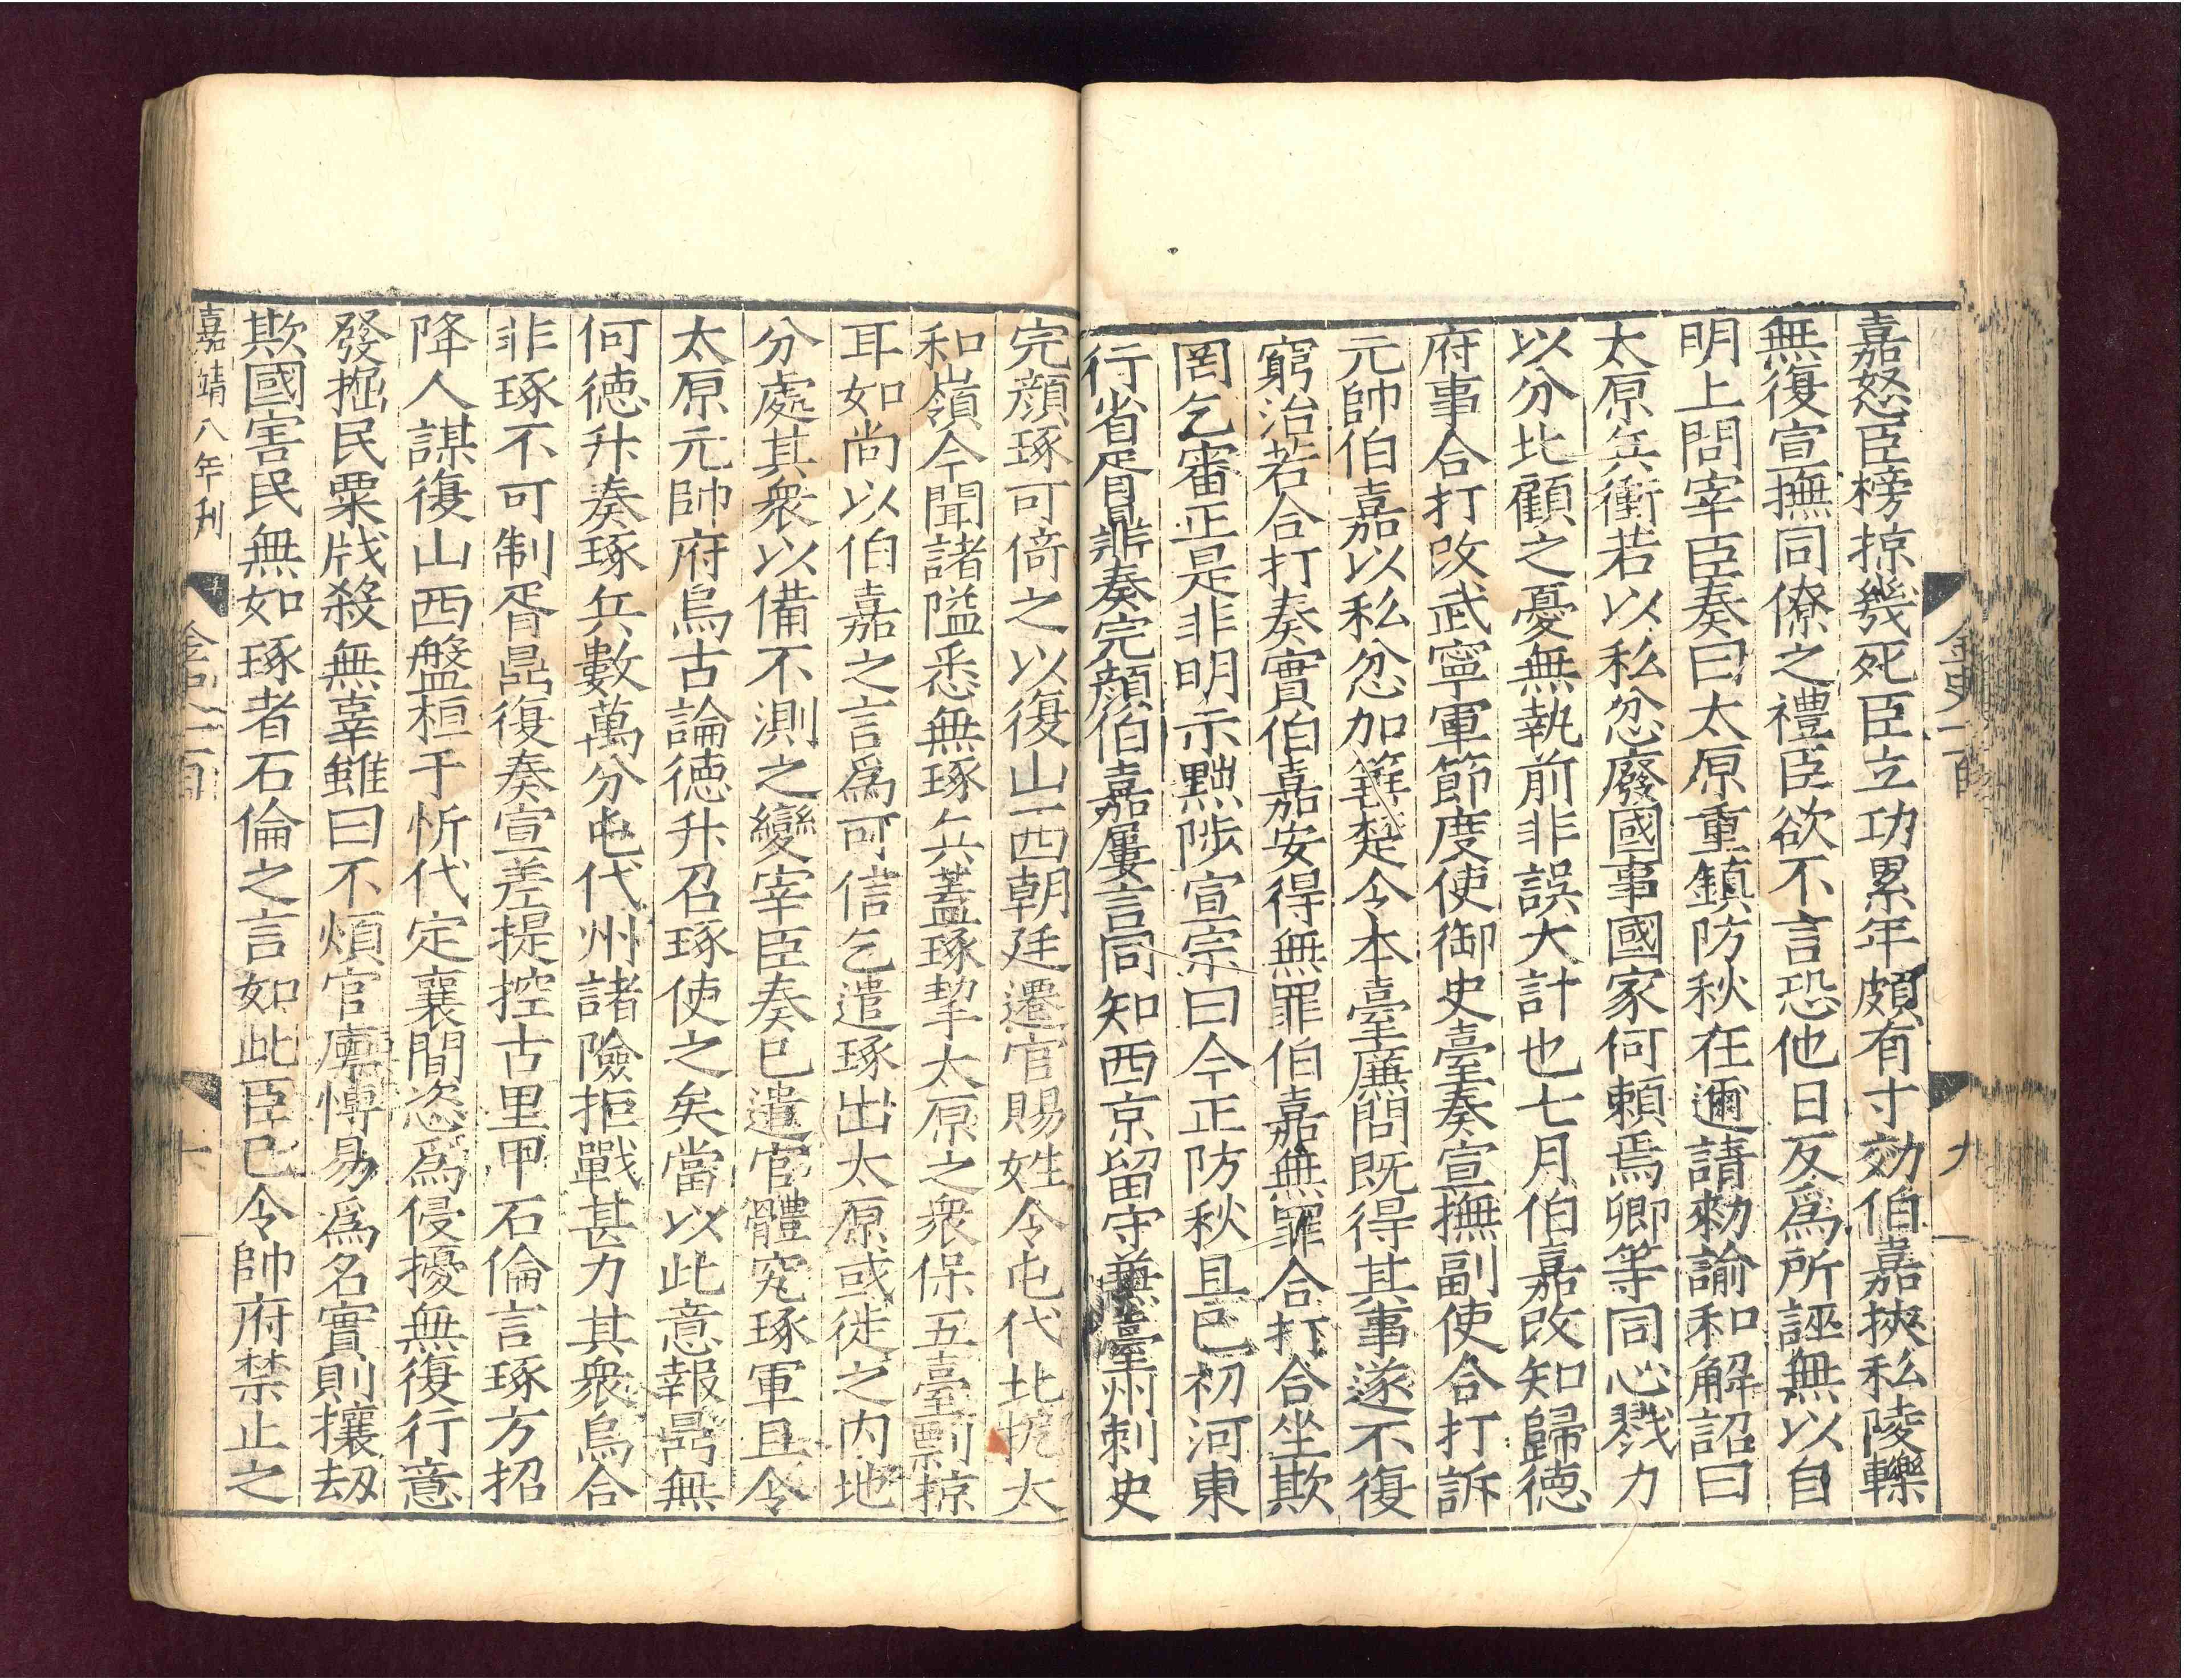 金史一百
九
嘉怒臣榜掠幾死臣立功累年頗有寸効伯嘉挾私陵轢
無復宣撫同僚之禮臣欲不言恐他日反爲所誣無以自
明上問宰臣奏曰太原重鎮防秋在邇請勑諭和解詔曰
太原兵衝若以私忿廢國事國家何頼焉卿等同心戮力
以分北顧之憂無執前非誤大計也七月伯嘉改知歸德
府事合打改武寧軍節度使御史臺奏宣撫副使合打訴
元帥伯嘉以私忿加箠楚令本臺廉問既得其事遂不復
窮治若合打奏實伯嘉安得無罪伯嘉無罪合打合坐欺
罔乞審正是非明示黜陟宣宗曰今正防秋且已初河東
行省胥鼎奏完顔伯嘉屢言同知西京留守兼臺州刺史
完顔琢可倚之以復山西朝廷遷官賜姓令屯代北扼太
和嶺今聞諸隘悉無琢兵蓋琢挈太原之衆保五臺剽掠
耳如尚以伯嘉之言爲可信乞遣琢出太原或徙之内地
分處其衆以備不測之變宰臣奏已遣官體究琢軍且令
太原元帥府烏古論德升召琢使之矣當以此意報鼎無
何德升奏琢兵數萬分屯代州諸險拒戰甚力其衆烏合
非琢不可制胥鼎復奏宣差提控古里甲石倫言琢方招
降人謀復山西盤桓于忻代定襄間恣爲侵擾無復行意
發掘民粟戕殺無辜雖曰不煩官廩博易爲名實則攘刼
欺國害民無如琢者石倫之言如此臣已令帥府禁止之
嘉靖八年刊
金史一百
十